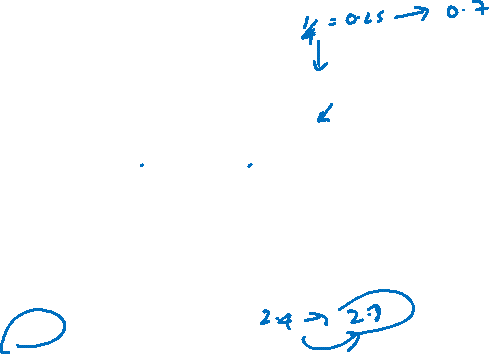 1/4 = 0.25 → 0.7
2.4 → 2.7